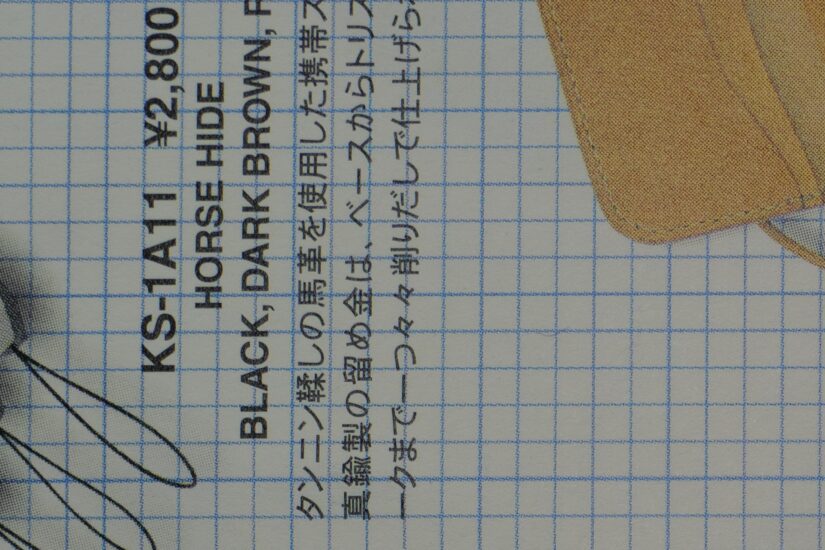 KS-1A11 ¥2,800
HORSE HIDE
BLACK, DARK BROWN,
タンニン鞣しの馬革を使用した携帯ス
真鍮製の留め金は、ベースからトリス
ークまで一つ々々削りだしで仕上げら